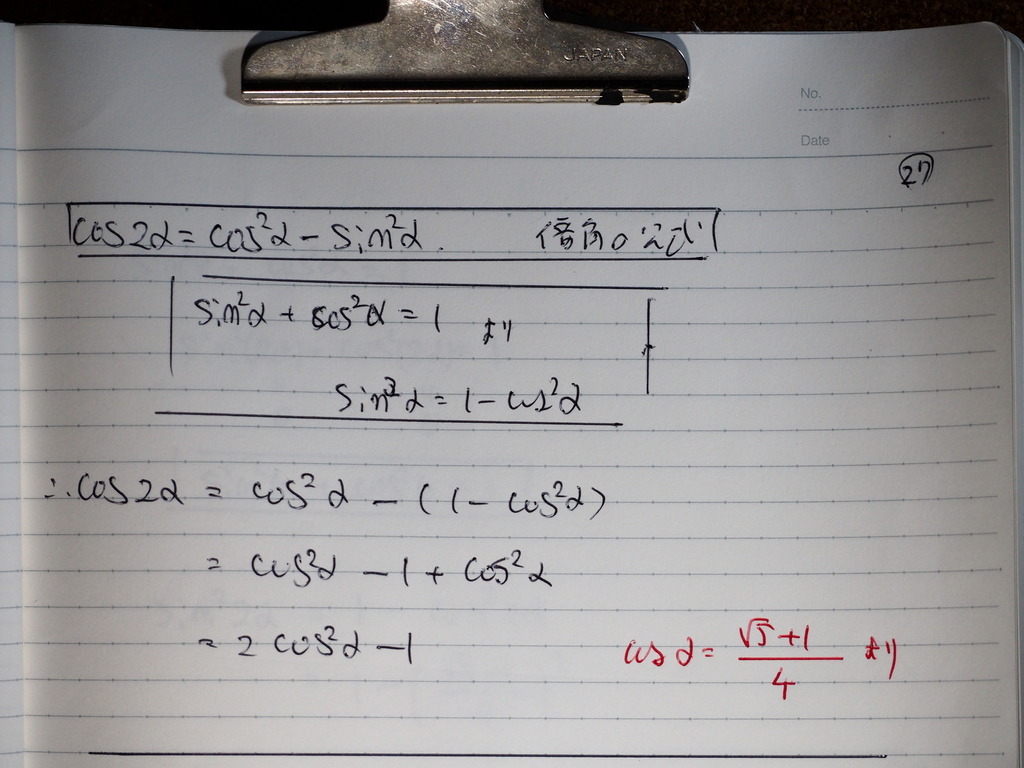 JAPAN
No.
Date
27
cos2α = cos²α - sin²α. 倍角の公式
sin²α + cos²α = 1 より
sin²α = 1 - cos²α
∴ cos2α = cos²α - (1 - cos²α)
= cos²α - 1 + cos²α
= 2cos²α - 1
cosα = (√5+1)/4 より